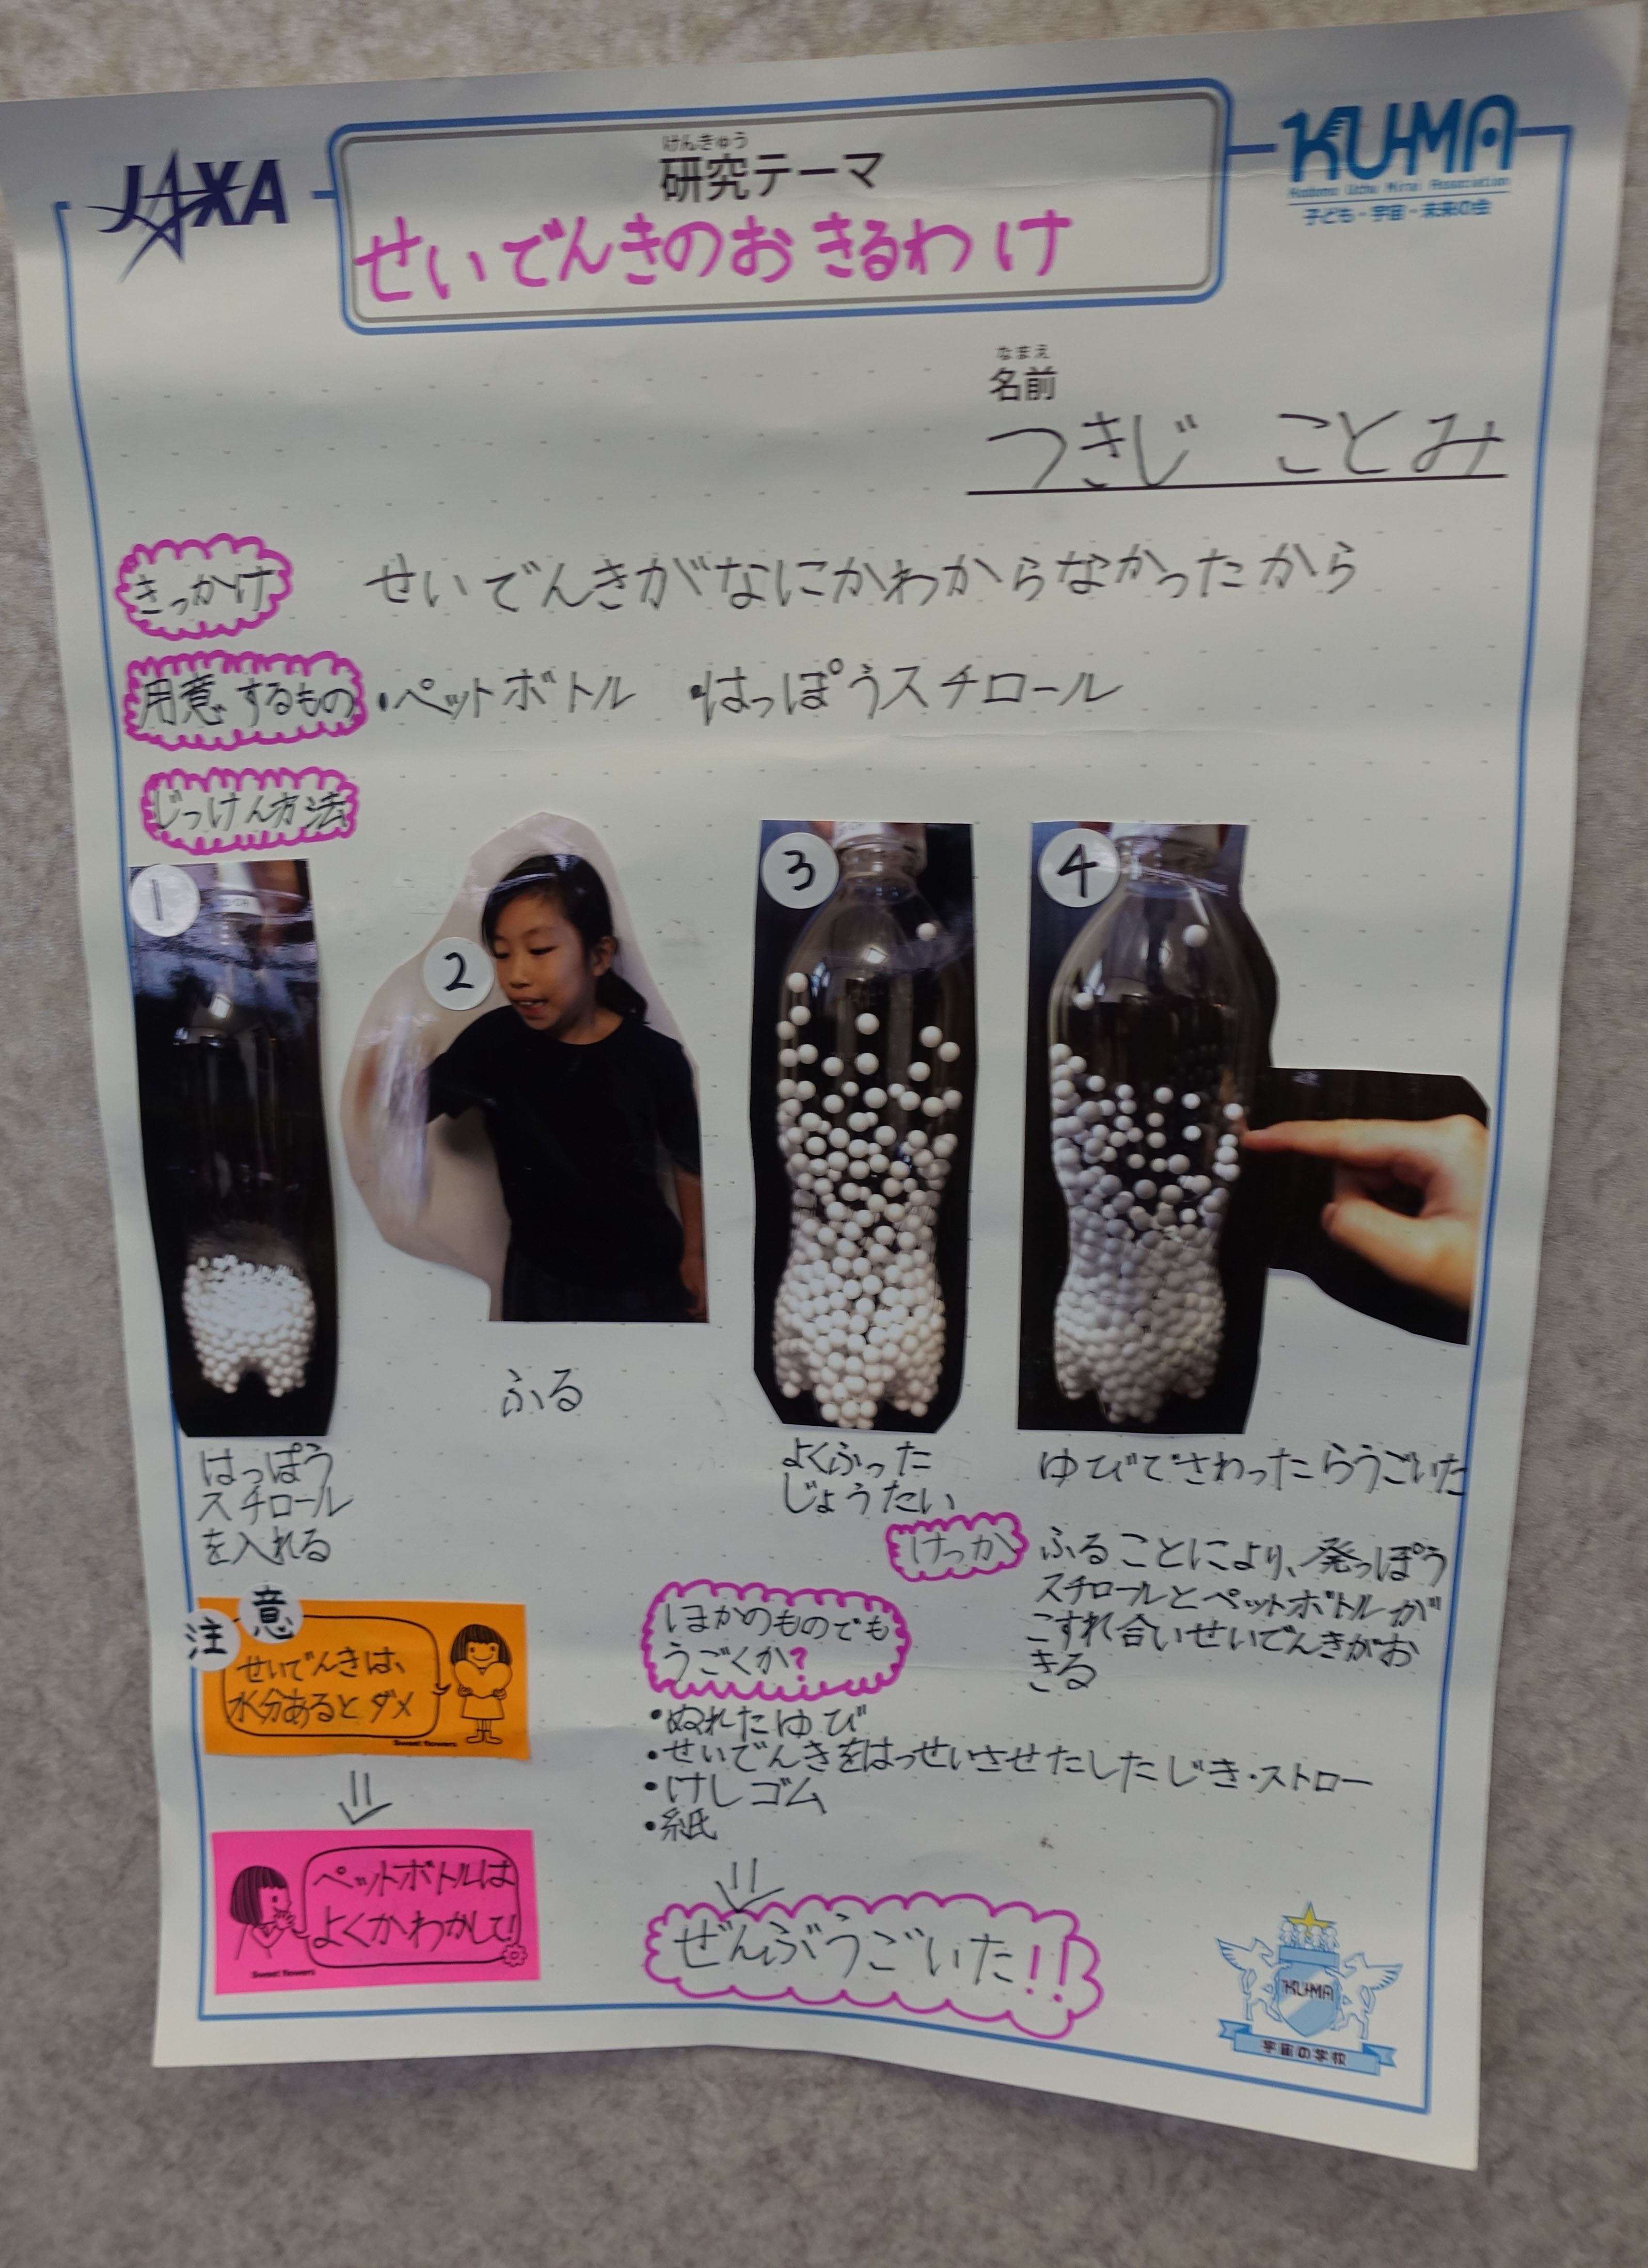 JAXA
けんきゅう
研究テーマ
せいでんきのおきるわけ
KU-MA
Kodomo Uchu Mirai Association
子ども・宇宙・未来の会
なまえ
名前
つきじ ことみ
きっかけ せいでんきがなにかわからなかったから
用意するもの ・ペットボトル ・はっぽうスチロール
じっけん方法
1
2
3
4
はっぽう
スチロール
を入れる
ふる
よくふった
じょうたい
ゆびでさわったらうごいた
けっか ふることにより、発っぽう
スチロールとペットボトルが
こすれ合いせいでんきがお
きる
注意
せいでんきは、
水分あるとダメ
Sweet flowers
ペットボトルは
よくかわかして!
Sweet flowers
ほかのものでも
うごくか?
・ぬれたゆび
・せいでんきをはっせいさせたしたじき・ストロー
・けしゴム
・紙
ぜんぶうごいた!!
KU-MA
宇宙の学校